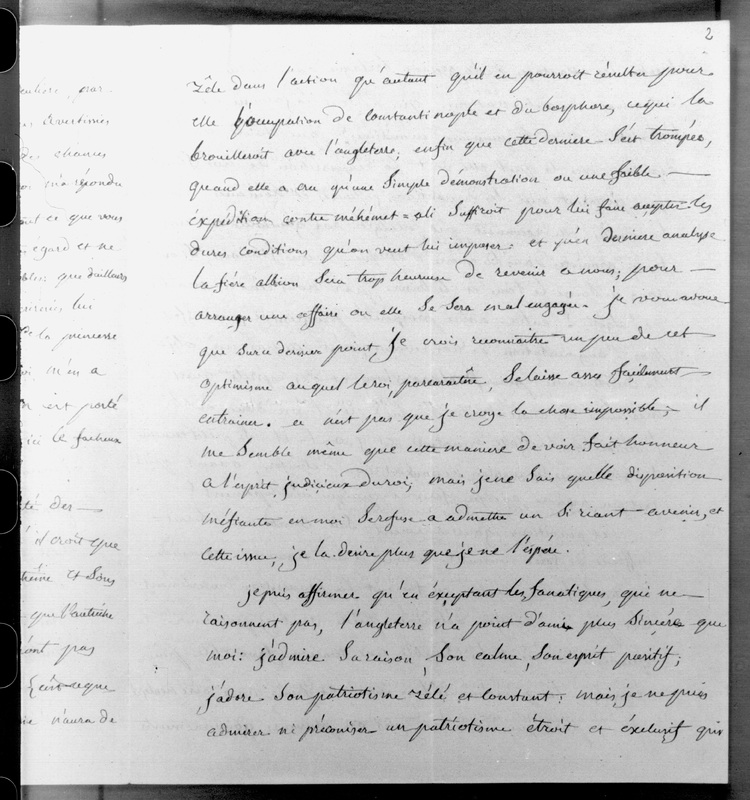 2
zêle dans l'action qu'autant qu'il en pourroit résulter pour
elle l'ocupation de Constantinople et du bosphore, ce qui la
brouilleroit avec l'angleterre, enfin que cette derniere s'est trompée,
quand elle a cru qu'une simple démonstration ou une faible —
éxpédition contre méhémet=ali suffiroit pour lui faire accepter les
dures conditions qu'on veut lui imposer. et qu'en derniere analyse
la fiére albion sera trop heureuse de revenir a nous, pour —
arranger une affaire ou elle se sera mal engagée. je vous avoue
que sur ce dernier point, je crois reconnaitre un peu de cet
optimisme auquel le roi, par caractère, se laisse assez facilement
entrainer. ce n'est pas que je croye la chose impossible, il
me semble même que cette maniere de voir fait honneur
a l'esprit judicieux du roi, mais je ne sais quelle disposition
méfiante en moi se refuse a admettre un si riant avenir, et
cette issue, je la desire plus que je ne l'espére.
je puis affirmer qu'en éxceptant les fanatiques, qui ne —
raisonnent pas, l'angleterre n'a point d'ami plus sincére que
moi: j'admire sa raison, son calme, son esprit positif;
j'adore son patriotisme zélé et constant; mais je ne puis
admirer ni préconiser un patriotisme étroit et éxclusif qui
par.
avertimes
des chances
m'a répondu
ce que vous
egard et ne
que d'ailleurs
lui
de la princesse
m'en a
est porté
ici le facheux
des —
il croit que
et sous
que l'autriche
pas
ce que
n'aura de